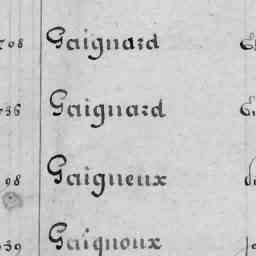 Gaignard
Gaignard
98 Gaigneux
Gaignoux